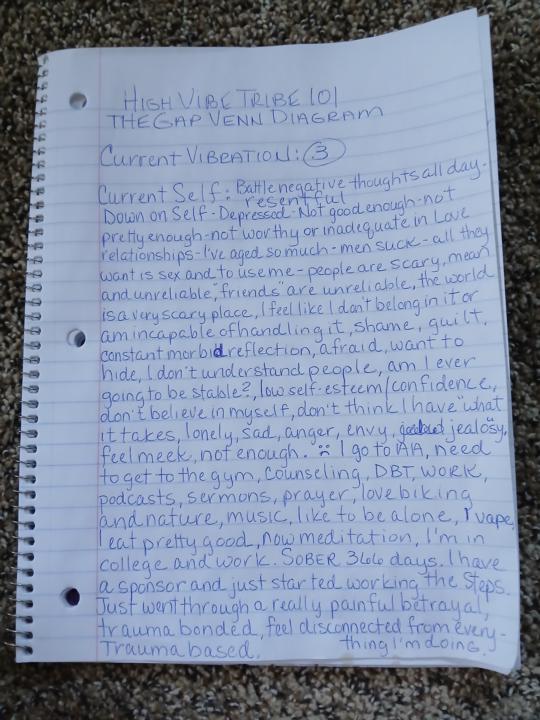 HIGH VIBE TRIBE 101
THE GAP VENN DIAGRAM
CURRENT VIBRATION: 3
Current Self: Battle negative thoughts all day.
resentful
Down on Self - Depressed - Not good enough - not
pretty enough - not worthy or inadequate in Love
relationships - I've aged so much - men suck - all they
want is sex and to use me - people are scary, mean
and unreliable, "friends" are unreliable, the world
is a very scary place, I feel like I don't belong in it or
am incapable of handling it, shame, guilt,
constant morbid reflection, afraid, want to
hide, I don't understand people, am I ever
going to be stable?, low self-esteem/confidence,
don't believe in myself, don't think I have "what
it takes," lonely, sad, anger, envy, jealousy,
feel meek, not enough. I go to AA, need
to get to the gym, counseling, DBT, WORK,
podcasts, sermons, prayer, love biking
and nature, music, like to be alone, I vape,
I eat pretty good, now meditation, I'm in
college and work. SOBER 366 days. I have
a sponsor and just started working the Steps.
Just went through a really painful betrayal,
trauma bonded, feel disconnected from every-
Trauma based. thing I'm doing.